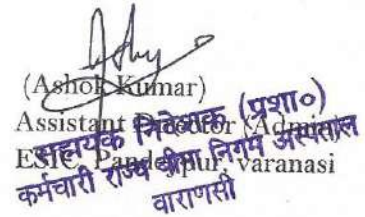 (Ashok Kumar)
Assistant Director (Admin)
ESIC, Pandeypur, varanasi
सहायक निदेशक (प्रशा०)
कर्मचारी राज्य बीमा निगम अस्पताल
वाराणसी